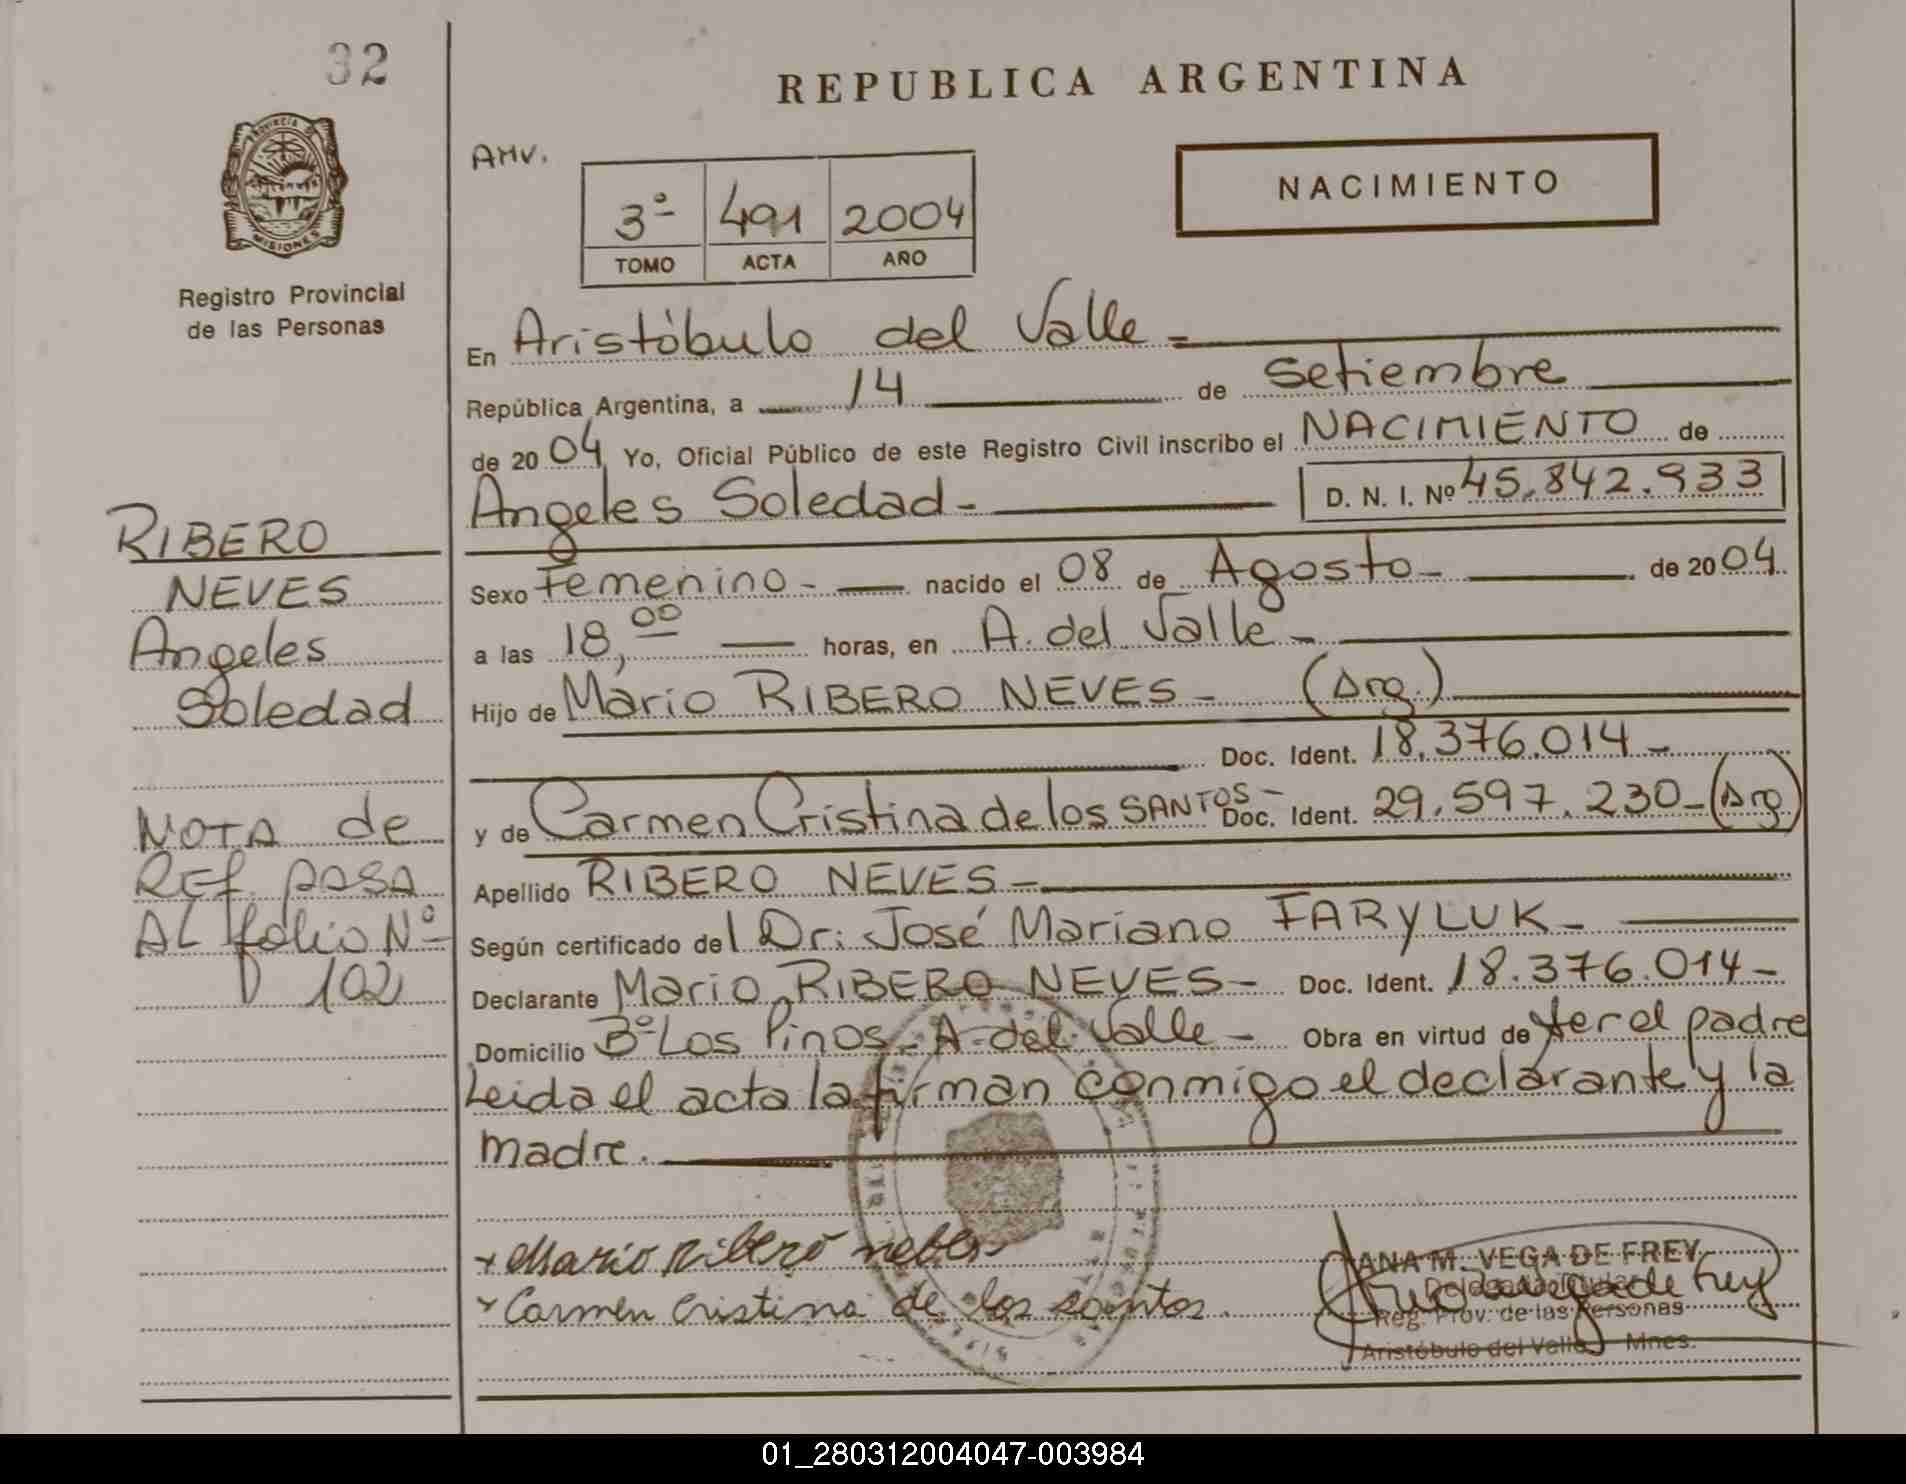 32
REPUBLICA ARGENTINA
PROVINCIA DE
MISIONES
Registro Provincial
de las Personas
AMV.
3º 491 2004
TOMO ACTA AÑO
NACIMIENTO
En Aristóbulo del Valle
República Argentina, a 14 de Setiembre
de 2004 Yo, Oficial Público de este Registro Civil inscribo el NACIMIENTO de
Angeles Soledad - D. N. I. Nº 45.842.933
RIBERO
NEVES
Angeles
Soledad
Sexo Femenino - nacido el 08 de Agosto - de 2004
a las 18,00 horas, en A. del Valle -
Hijo de Mario RIBERO NEVES - (Arg.)
Doc. Ident. 18.376.014 -
y de Carmen Cristina de los SANTOS - Doc. Ident. 29.597.230 - (Arg)
Apellido RIBERO NEVES -
Según certificado del Dr: José Mariano FARYLUK -
Declarante Mario RIBERO NEVES - Doc. Ident. 18.376.014 -
Domicilio Bº Los Pinos - A. del Valle - Obra en virtud de ser el padre
Leida el acta la firman conmigo el declarante y la
madre.
NOTA de
REf. PASA
AL folio Nº
102
Mario Ribero nebes
Carmen Cristina de los santos.
ANA M. VEGA DE FREY
Reg. Prov. de las Personas
Aristóbulo del Valle Mnes.
01_280312004047-003984